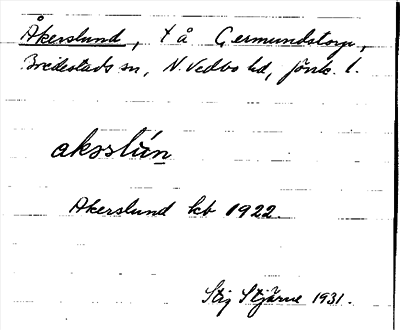 Åkerslund, t å Germundstorp,
Bredestads sn, N. Vedbo hd, Jönk. l.
aksslún
Akerslund kb 1922.
Stig Stjärne 1931.